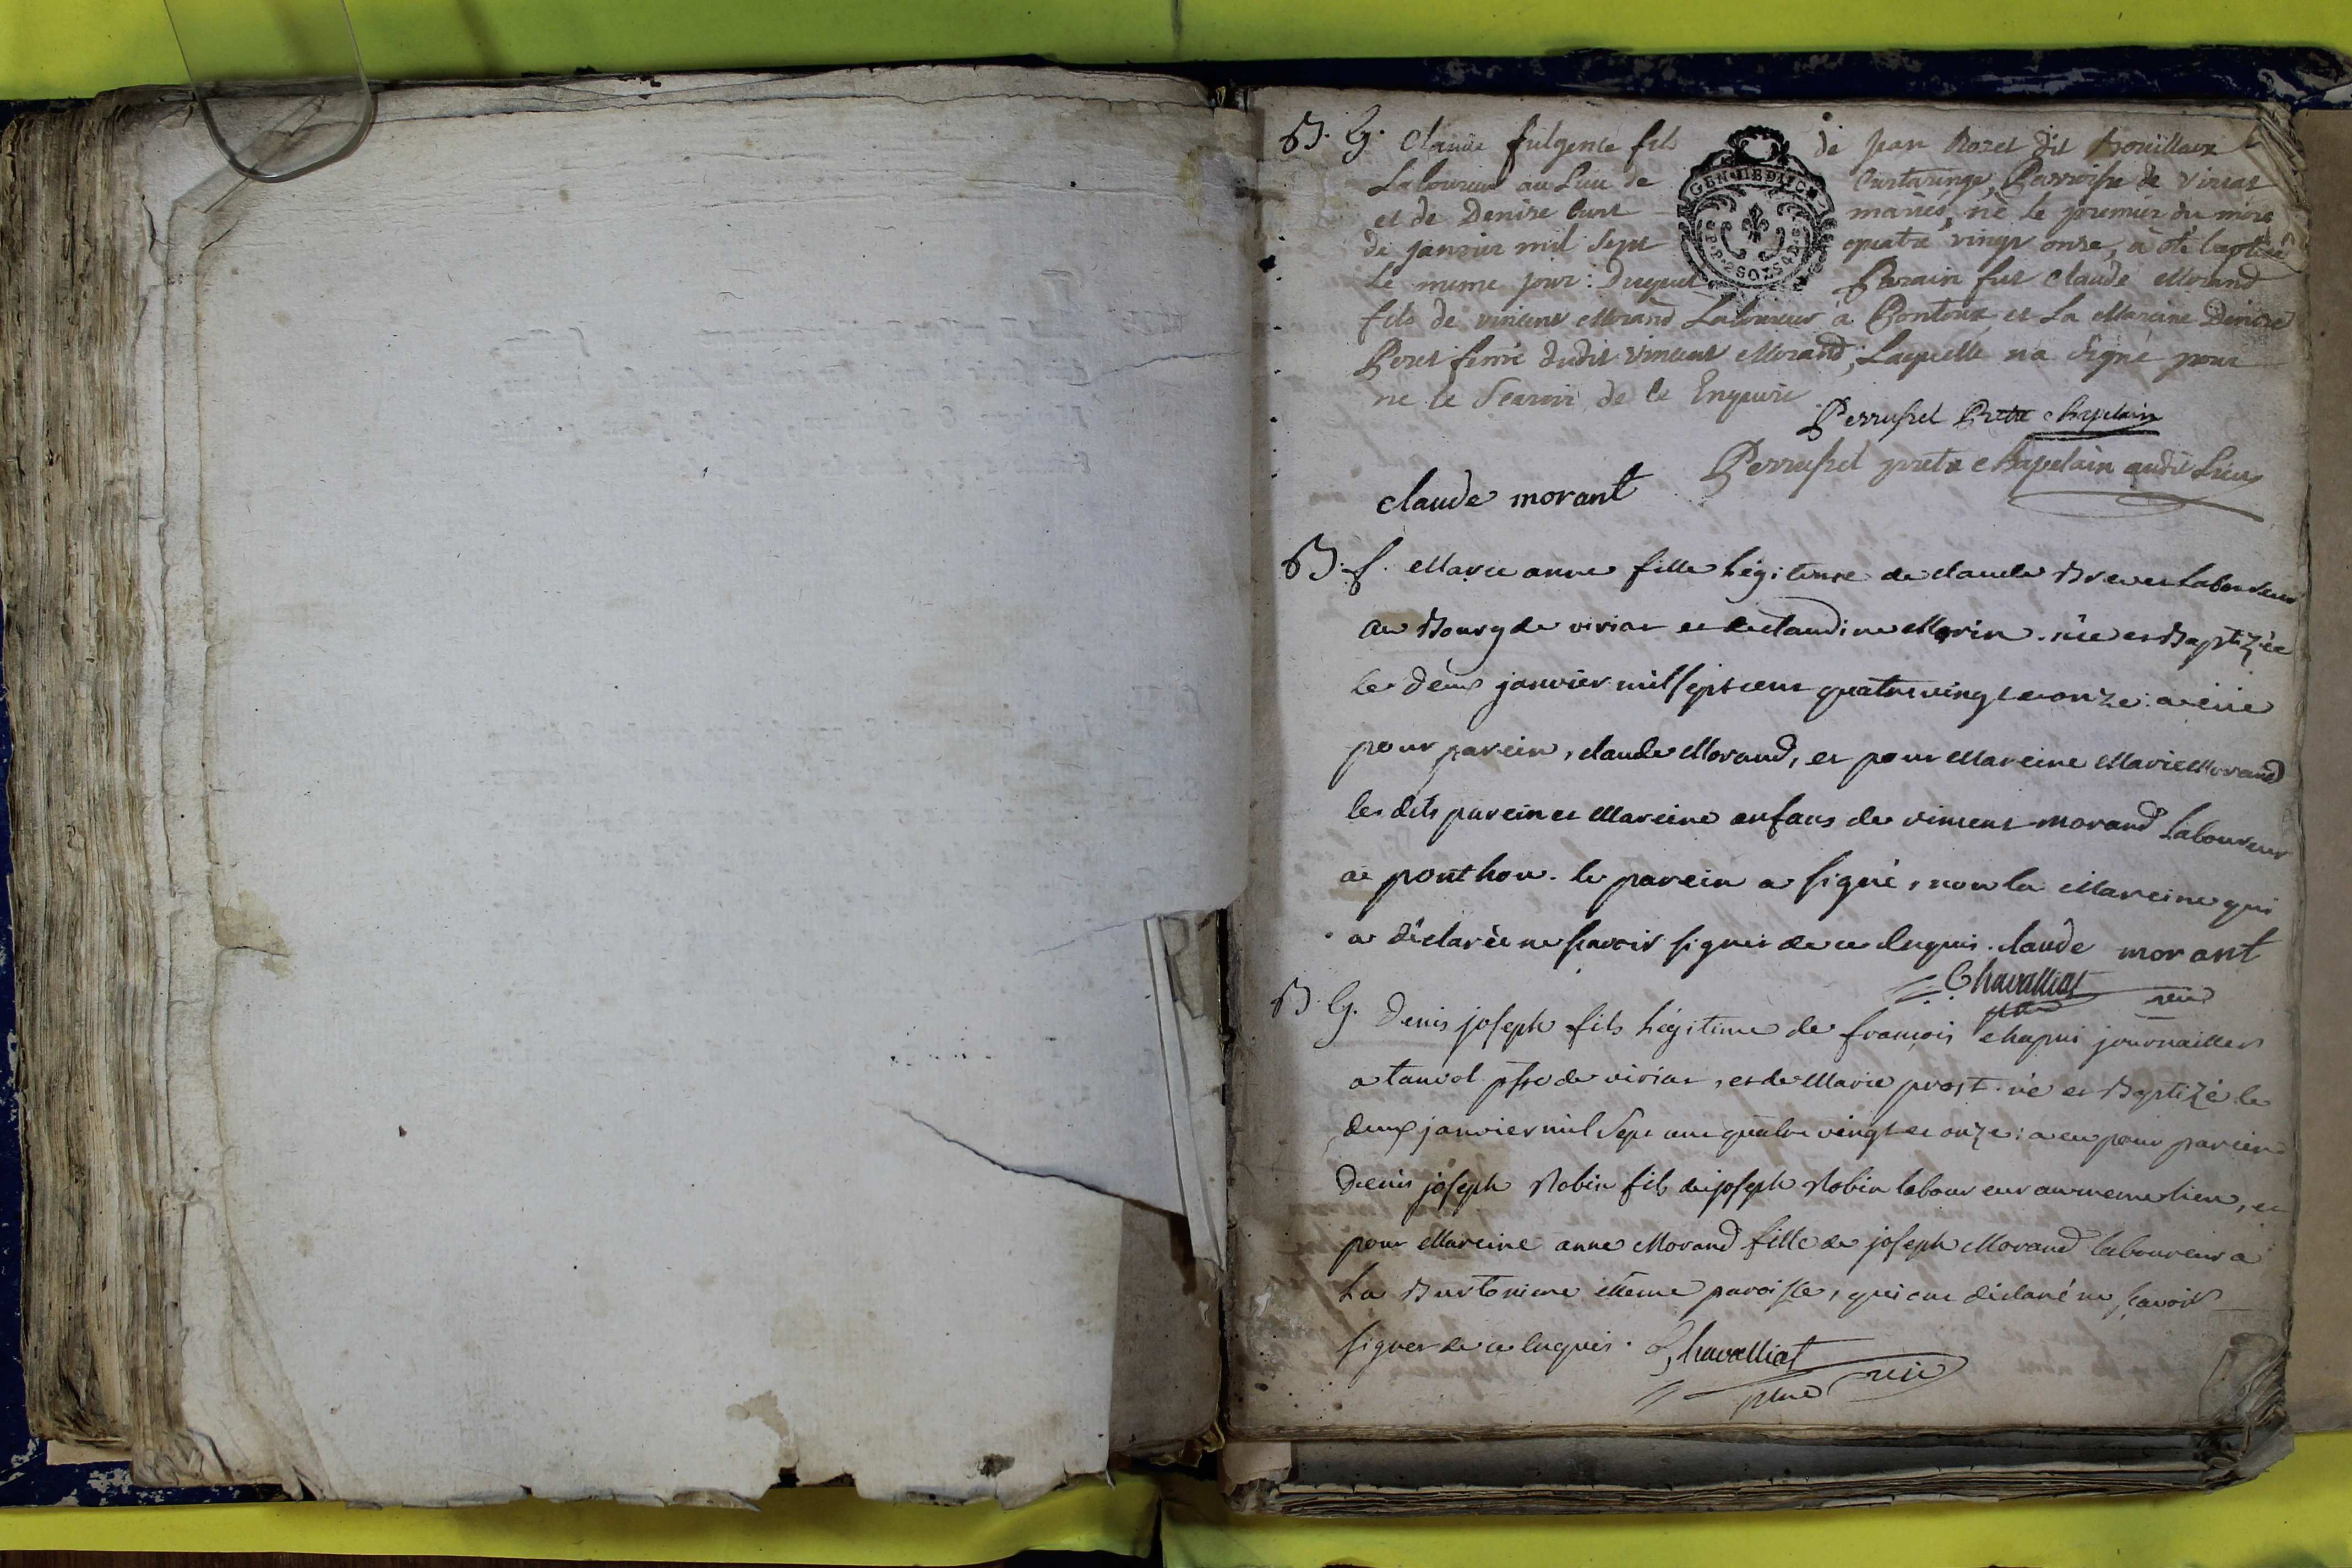 B. G. Claude fulgence fils de jean Rozet dit Bouillaux
Laboureur au Lieu de Curtaringe, Parroisse de Viriat
et de Denise Curt mariés, né le premier du mois
de janvier mil sept quatre vingt onze, a été baptisé
Le meme jour : Duquel Parain fut claude Morand
fils de vincent Morand Laboureur à Pontoux et La Maraine Denise
Perret feme dudit Vincent Morand ; Laquelle n'a signé pour
ne le Scavoir de Ce Enquise
Perrussel Pretre chapelain
Perrussel pretre chapelain audit Lieu
claude morant
GEN DE DIJON
2 SOLS
B. f. Marie anne fille Légitime de claude Brevet Laboureur
au Bourg de viriat et de claudine Morin. née et Baptizée
le deux janvier mil sept cent quatre vingt et onze : a eue
pour parein, claude Morand, et pour Mareine Marie Morand
les dits parein et Mareine enfans de vincent morand Laboureur
a ponthou. le parein a signé, non la Mareine qui
a déclarée ne scavoir signer de ce Enquis. claude morant
Chavalliat
B. G. Denis joseph fils Légitime de françois chapui journaillier
a tanvol psse de viriat, et de Marie prost. né et Baptizé le
deux janvier mil sept cent quatre vingt et onze : a eu pour parein
Denis joseph Robin fils de joseph Robin laboureur au meme lieu, et
pour Mareine anne Morand fille de joseph Morand laboureur a
La Bertoniere Même paroisse, qui ont déclaré ne scavoir
signer de ce Enquis. Chavalliat